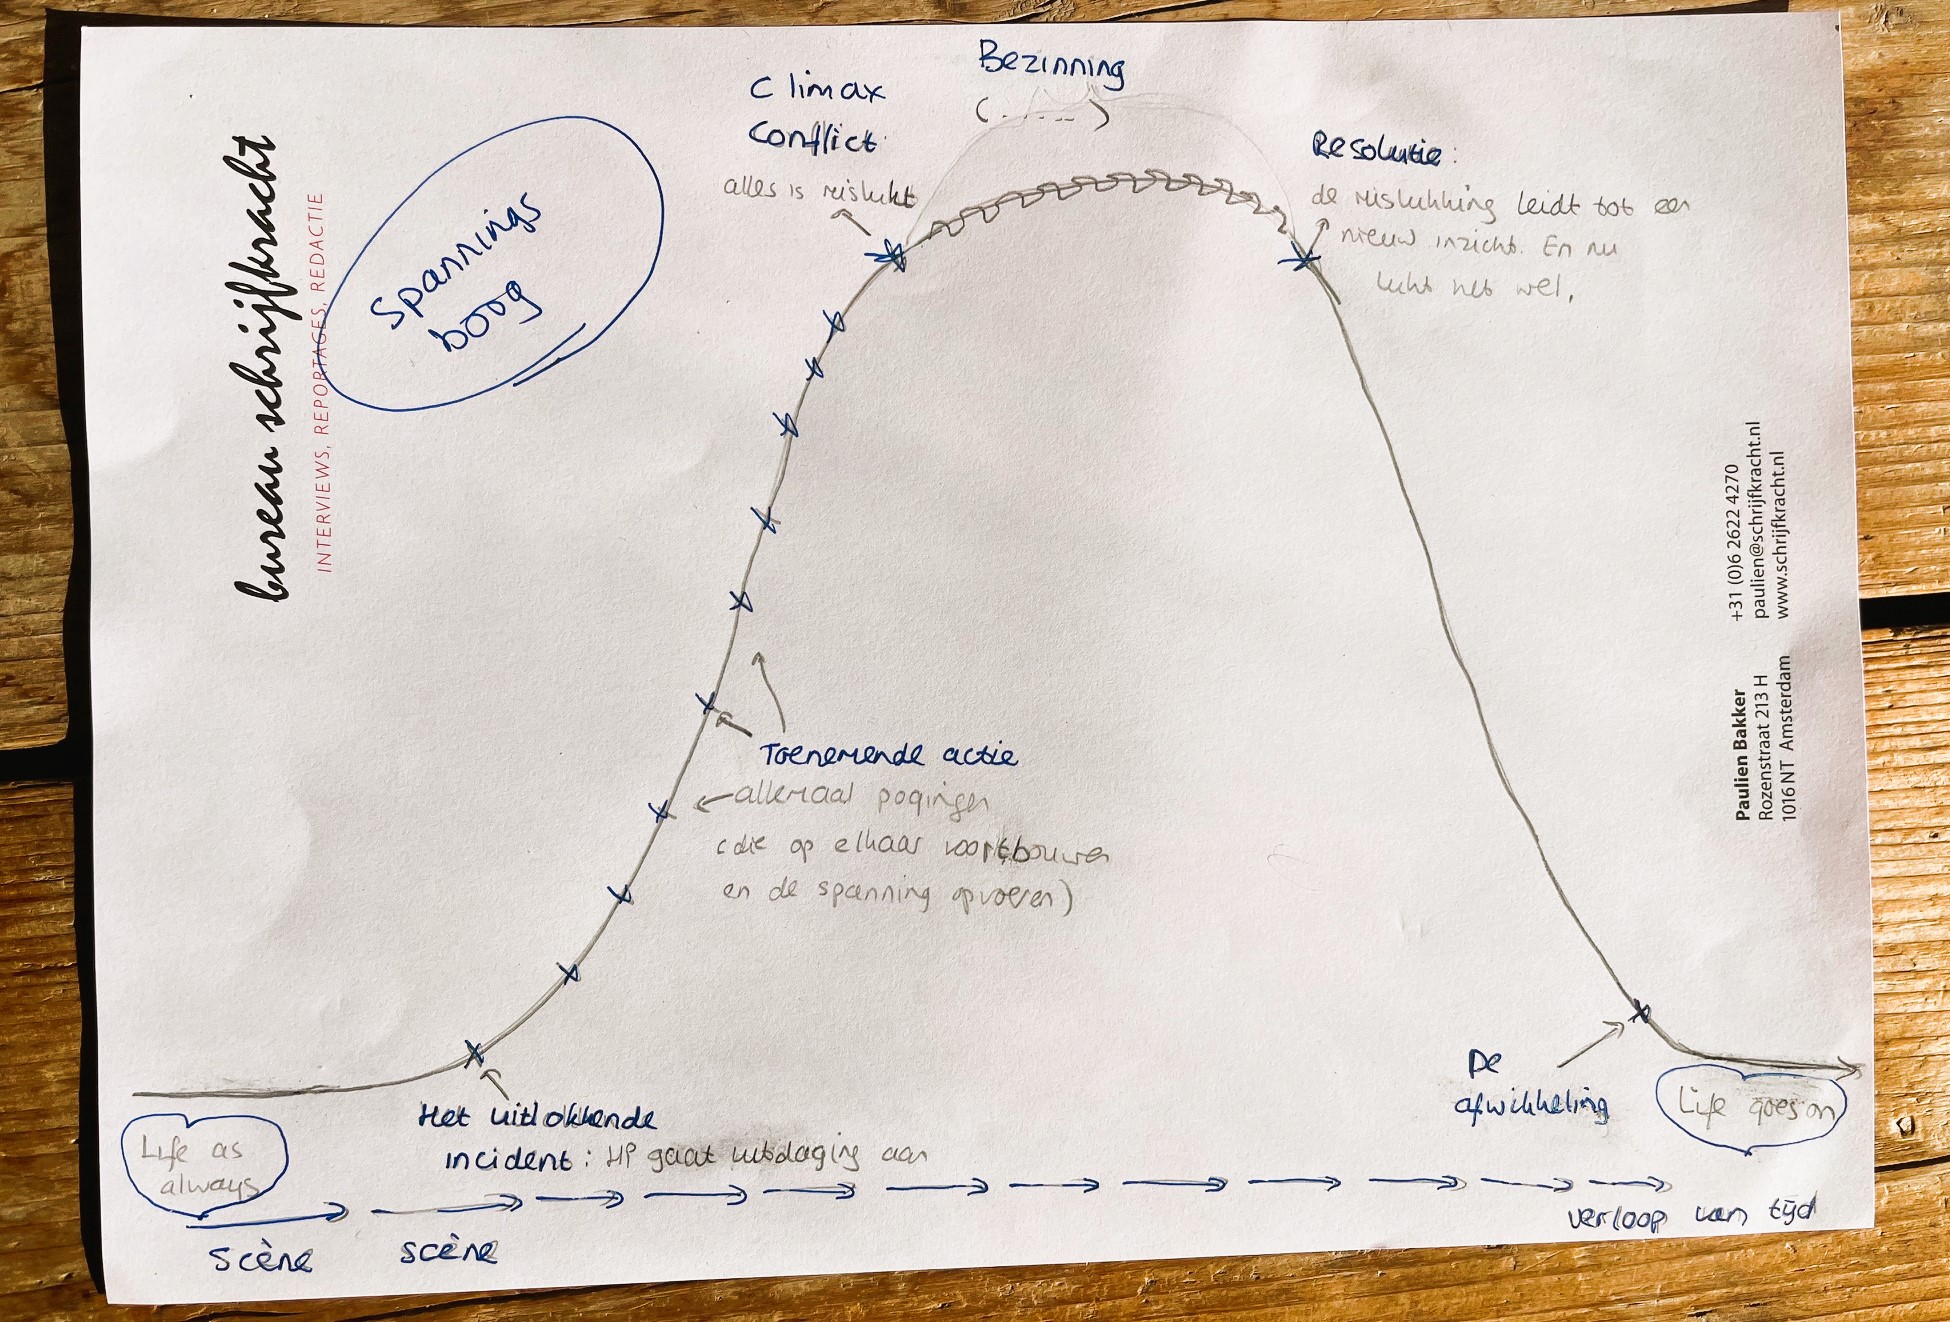 bureau schrijfkracht
INTERVIEWS, REPORTAGES, REDACTIE
Spannings
boog
Climax
Conflict
alles is mislukt
Bezinning
(.....)
Resolutie:
de mislukking leidt tot een
nieuw inzicht. En nu
lukt het wel.
Toenemende actie
allemaal pogingen
(die op elkaar voortbouwen
en de spanning opvoeren)
Het uitlokkende
incident: HP gaat uitdaging aan
De
afwikkeling
Life as
always
Life goes on
scène
scène
verloop van tijd
+31 (0)6 2622 4270
paulien@schrijfkracht.nl
www.schrijfkracht.nl
Paulien Bakker
Rozenstraat 213 H
1016 NT Amsterdam